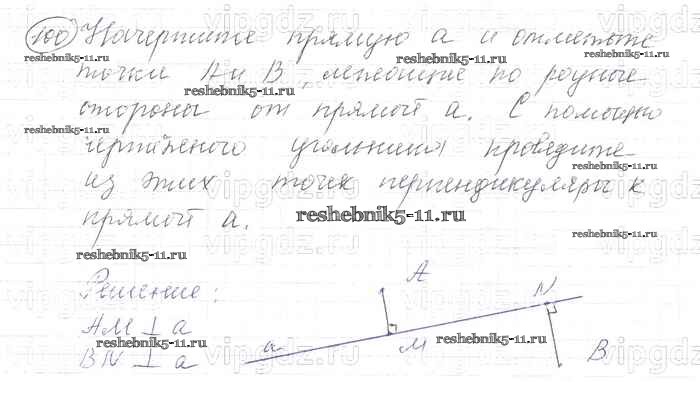 100 Начертите прямую а и отметьте
точки А и В, лежащие по разные
стороны от прямой а. С помощью
чертёжного угольника проведите
из этих точек перпендикуляры к
прямой а.
Решение:
АМ ⊥ а
BN ⊥ а
A
N
а
М
В
reshebnik5-11.ru
reshebnik5-11.ru
reshebnik5-11.ru
reshebnik5-11.ru
reshebnik5-11.ru
reshebnik5-11.ru
reshebnik5-11.ru
reshebnik5-11.ru
reshebnik5-11.ru
reshebnik5-11.ru